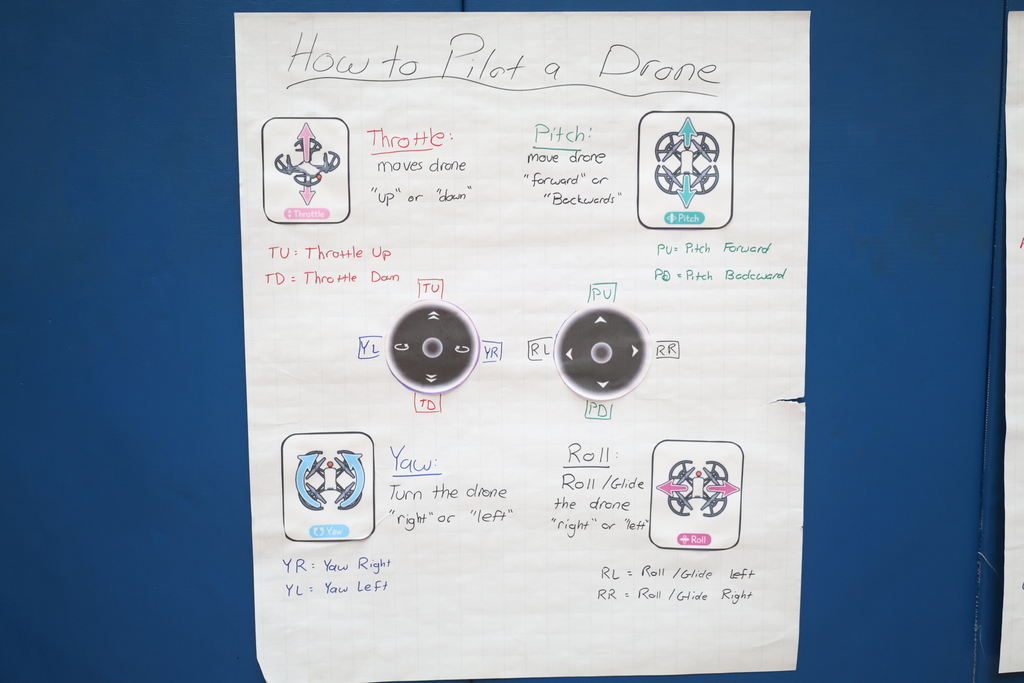 How to Pilot a Drone
Throttle
Throttle:
moves drone
"up" or "down"
Pitch:
move drone
"forward" or
"Backwards"
Pitch
TU: Throttle Up
TD = Throttle Down
PU= Pitch Forward
PD = Pitch Backward
TU
YL
YR
TD
PU
RL
RR
PD
Yaw
Yaw:
Turn the drone
"right" or "left"
Roll:
Roll/Glide
the drone
"right" or "left"
Roll
YR: Yaw Right
YL: Yaw Left
RL = Roll/Glide Left
RR = Roll/Glide Right